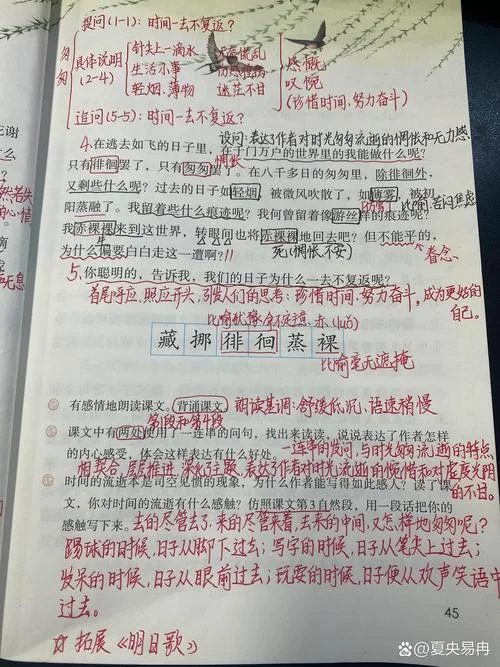 提问(1-1):时间一去不复返?
匆匆
具体说明(2-4)
针尖上一滴水
生活小事
轻烟、薄物
迷茫不甘
感慨
叹惋
(珍惜时间、努力奋斗)
追问(5-5):时间一去不复返?
设问:表达了作者对时光匆匆流逝的惆怅和无力感
4.在逃去如飞的日子里,在千门万户的世界里的我能做什么呢?
只有徘徊罢了,只有匆匆罢了。在八千多日的匆匆里,除徘徊外,
惆怅
又剩些什么呢?过去的日子如轻烟,被微风吹散了,如薄雾,被初
阳蒸融了。我留着些什么痕迹呢?我何曾留着像游丝样的痕迹呢?
我赤裸裸来到这世界,转眼间也将赤裸裸地回去吧?但不能平的,
为什么偏要白白走这一遭啊?
死(惆怅不安)
5.你聪明的,告诉我,我们的日子为什么一去不复返呢?
首尾呼应,照应开头,引发人们的思考:珍惜时间,努力奋斗,成为更好的
自己。
赤(luǒ)
藏 挪 徘 徊 蒸 裸
比喻毫无遮掩
有感情地朗读课文。背诵课文。朗读基调:舒缓低沉,语速稍慢
第1段和第4段
课文中有两处使用了一连串的问句,找出来读读,说说表达了作者怎样
的内心感受,体会这样表达有什么好处。一连串的发问,与时光匆匆流逝的特点
相契合,层层推进,深化了主题,表达了作者对时光流逝的惋惜和对虚度光阴
的不甘。
时间的流逝本是司空见惯的现象,为什么作者能写得如此感人?读了课
文,你对时间的流逝有什么感触?仿照课文第3自然段,用一段话把你的
感触写下来。去的尽管去了,来的尽管来着,去来的中间,又怎样地匆匆呢?
踢球的时候,日子从脚下过去;写字的时候,日子从笔尖上过去;
发呆的时候,日子从眼前过去;玩耍的时候,日子便从欢声笑语中
过去。
45
☆ 拓展《明日歌》
@夏央易冉